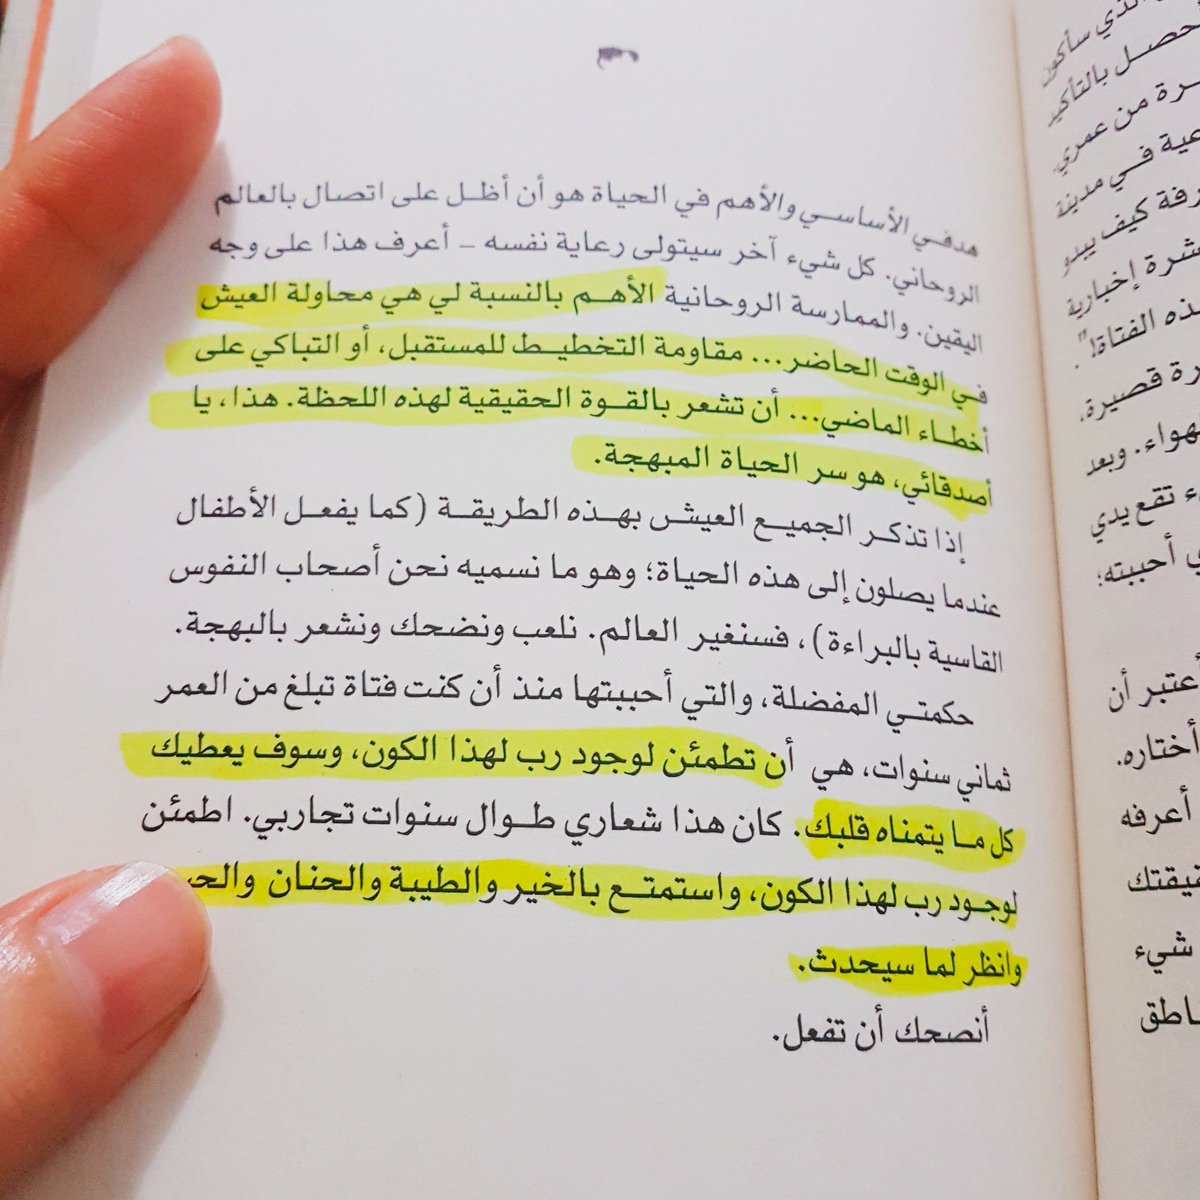 هدفي الأساسي والأهم في الحياة هو أن أظل على اتصال بالعالم
الروحاني. كل شيء آخر سيتولى رعاية نفسه – أعرف هذا على وجه
اليقين. والممارسة الروحانية الأهم بالنسبة لي هي محاولة العيش
في الوقت الحاضر... مقاومة التخطيط للمستقبل، أو التباكي على
أخطاء الماضي... أن تشعر بالقوة الحقيقية لهذه اللحظة. هذا، يا
أصدقائي، هو سر الحياة المبهجة.
إذا تذكر الجميع العيش بهذه الطريقة (كما يفعل الأطفال
عندما يصلون إلى هذه الحياة؛ وهو ما نسميه نحن أصحاب النفوس
القاسية بالبراءة)، فسنغير العالم. نلعب ونضحك ونشعر بالبهجة.
حكمتي المفضلة، والتي أحببتها منذ أن كنت فتاة تبلغ من العمر
ثماني سنوات، هي أن تطمئن لوجود رب لهذا الكون، وسوف يعطيك
كل ما يتمناه قلبك. كان هذا شعاري طوال سنوات تجاربي. اطمئن
لوجود رب لهذا الكون، واستمتع بالخير والطيبة والحنان
وانظر لما سيحدث.
أنصحك أن تفعل.
الذي سأكون
حصل بالتأكيد
من عمري
في مدينة
كيف يبدو
إخبارية
الفتاة!".
قصيرة،
وبعد
تقع يدي
أحببته؛
أن
أختاره.
أعرفه
شيء